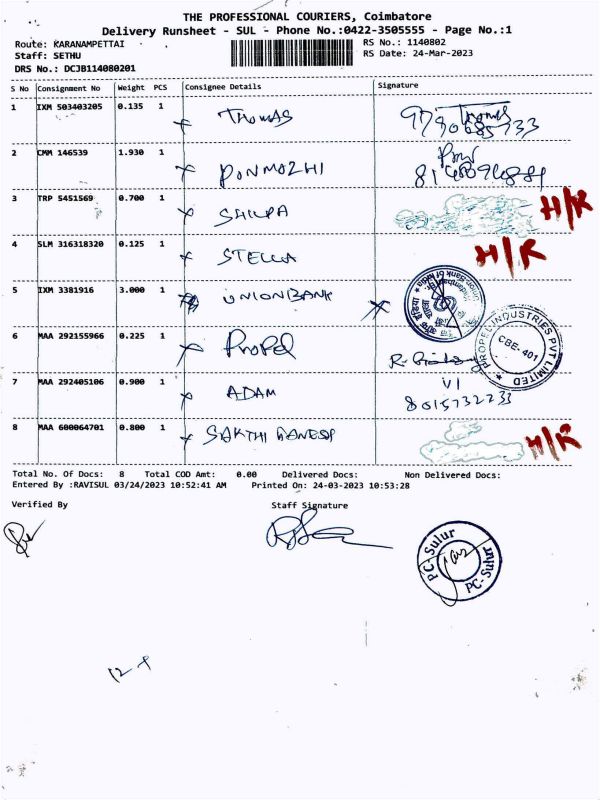 THE PROFESSIONAL COURIERS, Coimbatore
Delivery Runsheet - SUL - Phone No.:0422-3505555 - Page No.:1
Route: KARANAMPETTAI
RS No.: 1140802
Staff: SETHU
RS Date: 24-Mar-2023
DRS No.: DCJB114080201
S No Consignment No Weight PCS Consignee Details Signature
1 IXM 503403205 0.135 1 THOMAS
2 CMM 146539 1.930 1 PONMOZHI
3 TRP 5451569 0.700 1 SHILPA H/R
4 SLM 316318320 0.125 1 STELLA H/R
5 IXM 3381916 3.000 1 UNIONBANK
6 MAA 292155966 0.225 1 Propel
PROPEL INDUSTRIES PVT LIMITED
CBE-401
7 MAA 292405106 0.900 1 ADAM
8015732233
8 MAA 600064701 0.800 1 SAKTHI GANESH H/R
Total No. Of Docs: 8 Total COD Amt: 0.00 Delivered Docs: Non Delivered Docs:
Entered By :RAVISUL 03/24/2023 10:52:41 AM Printed On: 24-03-2023 10:53:28
Verified By Staff Signature
PC-Sulur
PC-Sulur